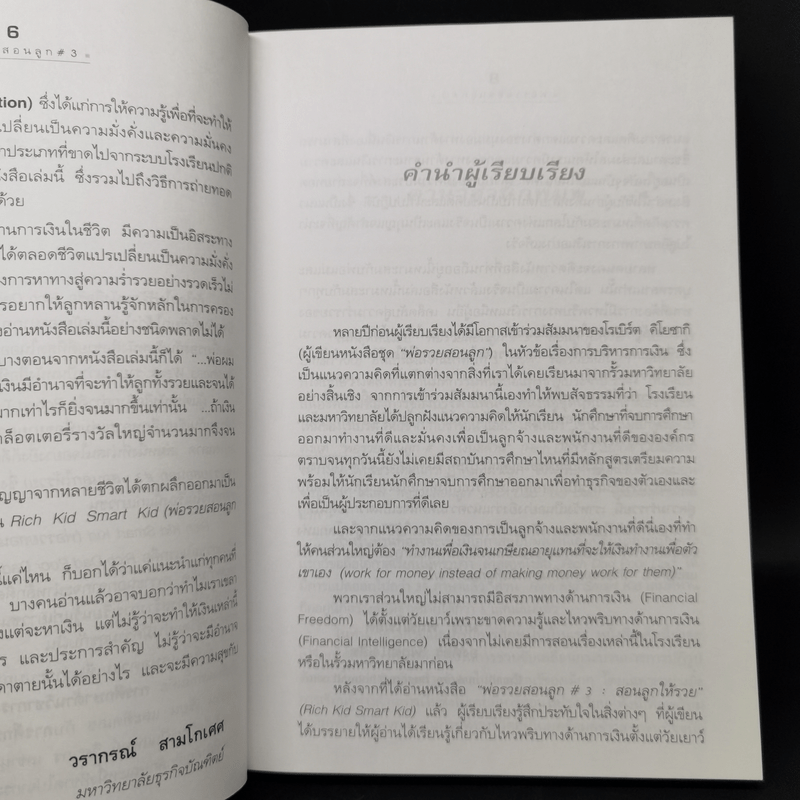 6
สอนลูก # 3
tion) ซึ่งได้แก่การให้ความรู้เพื่อที่จะทำให้
เปลี่ยนเป็นความมั่งคั่งและความมั่นคง
าประเภทที่ขาดไปจากระบบโรงเรียนปกติ
ังสือเล่มนี้ ซึ่งรวมไปถึงวิธีการถ่ายทอด
ด้วย
านการเงินในชีวิต มีความเป็นอิสระทาง
ได้ตลอดชีวิตแปรเปลี่ยนเป็นความมั่งคั่ง
งการหาทางสู่ความร่ำรวยอย่างรวดเร็วไม่
รอยากให้ลูกหลานรู้จักหลักในการครอง
งอ่านหนังสือเล่มนี้อย่างชนิดพลาดไม่ได้
บางตอนจากหนังสือเล่มนี้ก็ได้ "...พ่อผม
เงินมีอำนาจที่จะทำให้ลูกทั้งรวยและจนได้
มากเท่าไรก็ยิ่งจนมากขึ้นเท่านั้น ...ถ้าเงิน
ล็อตเตอรี่รางวัลใหญ่จำนวนมากจึงจน
ญญาจากหลายชีวิตได้ตกผลึกออกมาเป็น
น Rich Kid Smart Kid (พ่อรวยสอนลูก
แค่ไหน ก็บอกได้ว่าแค่แนะนำแก่ทุกคนที่
บางคนอ่านแล้วอาจบอกว่าทำไมเราเขลา
งแต่จะหาเงิน แต่ไม่รู้ว่าจะทำให้เงินเหล่านี้
ร และประการสำคัญ ไม่รู้ว่าจะมีอำนาจ
ดาตายนั้นได้อย่างไร และจะมีความสุขกับ
วรากรณ์ สามโกเศศ
มหาวิทยาลัยธุรกิจบัณฑิตย์
คำนำผู้เรียบเรียง
หลายปีก่อนผู้เรียบเรียงได้มีโอกาสเข้าร่วมสัมมนาของโรเบิร์ต คิโยซากิ
(ผู้เขียนหนังสือชุด "พ่อรวยสอนลูก") ในหัวข้อเรื่องการบริหารการเงิน ซึ่ง
เป็นแนวความคิดที่แตกต่างจากสิ่งที่เราได้เคยเรียนมาจากรั้วมหาวิทยาลัย
อย่างสิ้นเชิง จากการเข้าร่วมสัมมนานี้เองทำให้พบสัจธรรมที่ว่า โรงเรียน
และมหาวิทยาลัยได้ปลูกฝังแนวความคิดให้นักเรียน นักศึกษาที่จบการศึกษา
ออกมาทำงานที่ดีและมั่นคงเพื่อเป็นลูกจ้างและพนักงานที่ดีขององค์กร
ตราบจนทุกวันนี้ยังไม่เคยมีสถาบันการศึกษาไหนที่มีหลักสูตรเตรียมความ
พร้อมให้นักเรียนนักศึกษาจบการศึกษาออกมาเพื่อทำธุรกิจของตัวเองและ
เพื่อเป็นผู้ประกอบการที่ดีเลย
และจากแนวความคิดของการเป็นลูกจ้างและพนักงานที่ดีนี่เองที่ทำ
ให้คนส่วนใหญ่ต้อง "ทำงานเพื่อเงินจนเกษียณอายุแทนที่จะให้เงินทำงานเพื่อตัว
เขาเอง (work for money instead of making money work for them)"
พวกเราส่วนใหญ่ไม่สามารถมีอิสรภาพทางด้านการเงิน (Financial
Freedom) ได้ตั้งแต่วัยเยาว์เพราะขาดความรู้และไหวพริบทางด้านการเงิน
(Financial Intelligence) เนื่องจากไม่เคยมีการสอนเรื่องเหล่านี้ในโรงเรียน
หรือในรั้วมหาวิทยาลัยมาก่อน
หลังจากที่ได้อ่านหนังสือ "พ่อรวยสอนลูก # 3 : สอนลูกให้รวย"
(Rich Kid Smart Kid) แล้ว ผู้เรียบเรียงรู้สึกประทับใจในสิ่งต่างๆ ที่ผู้เขียน
ได้บรรยายให้ผู้อ่านได้เรียนรู้เกี่ยวกับไหวพริบทางด้านการเงินตั้งแต่วัยเยาว์